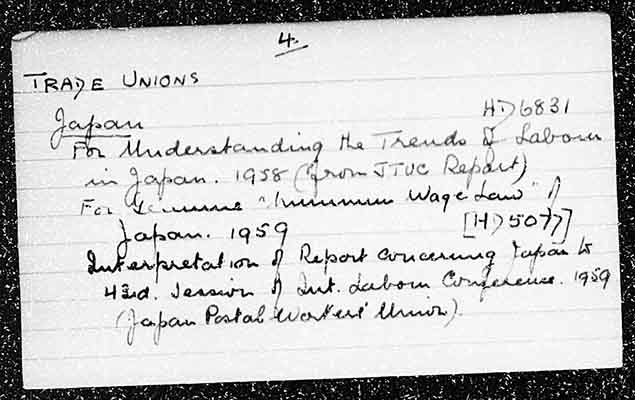 4.
TRADE UNIONS
HD6831
Japan
For Understanding the Trends of Labour
in Japan. 1958 (from JTUC Report)
For Genuine "Minimum Wage Law" of
Japan. 1959 [HD5077]
Interpretation of Report concerning Japan to
43rd. Session of Int. Labour Conference. 1959
(Japan Postal Workers' Union).